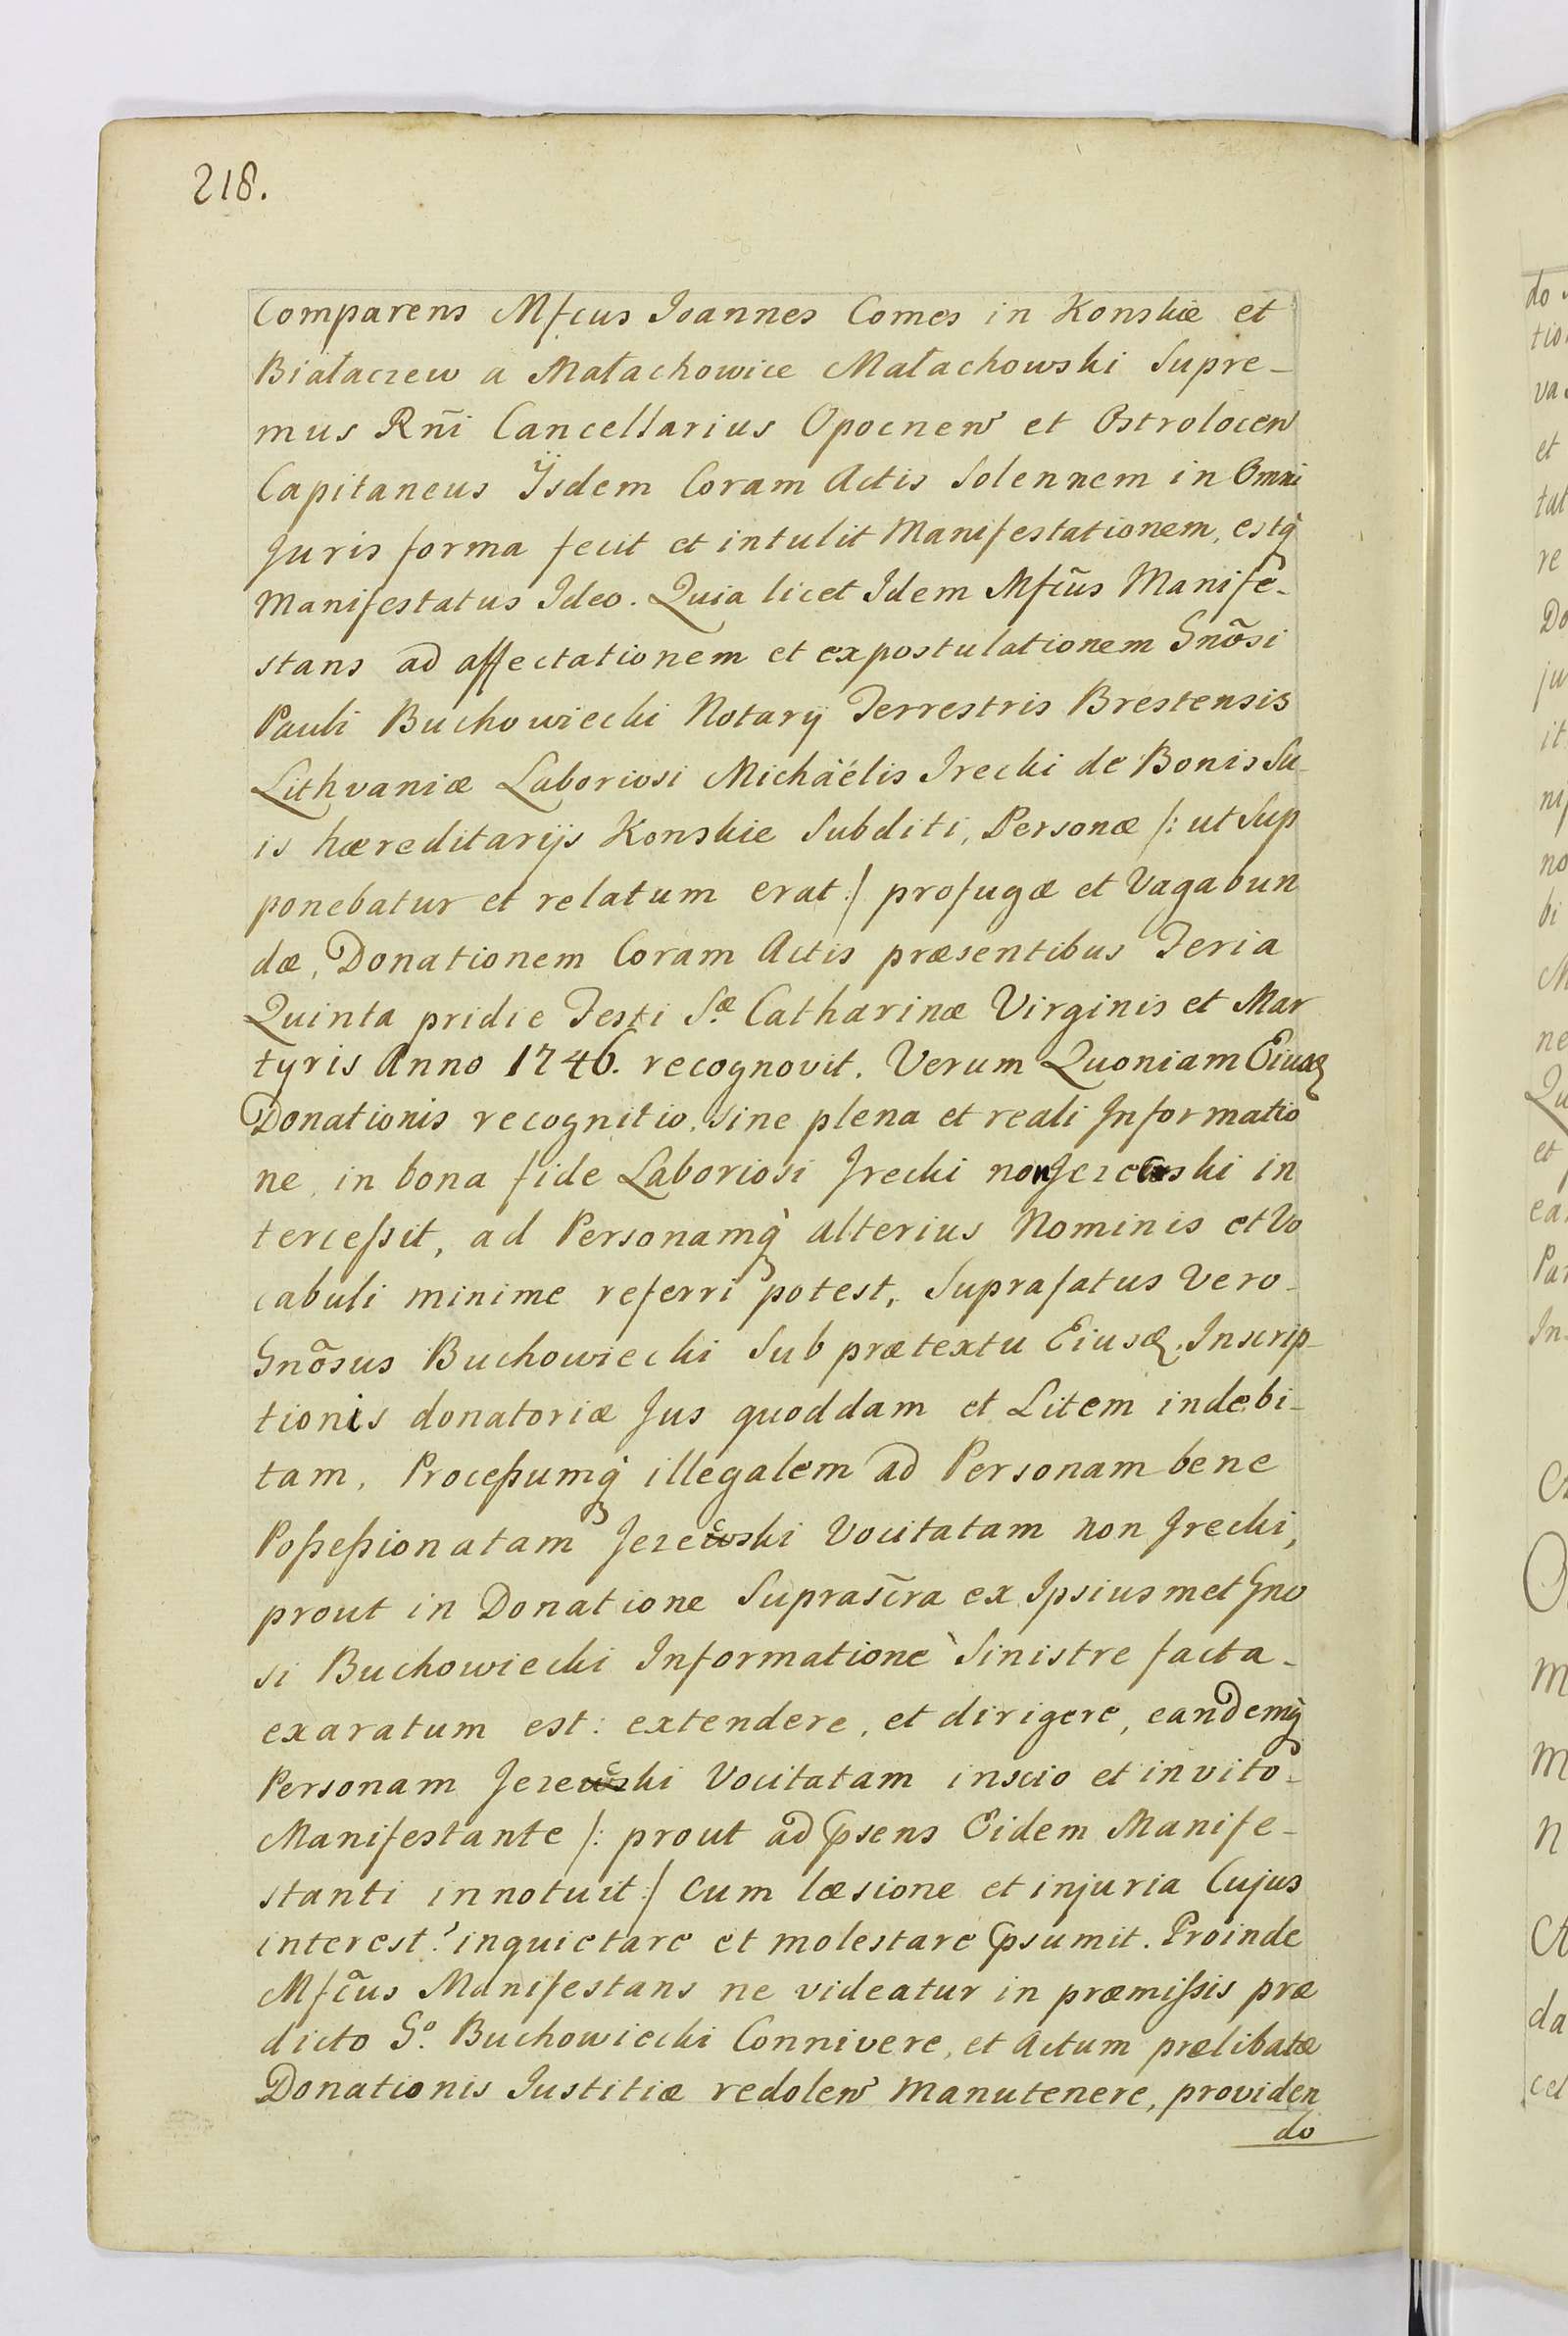 218.
Comparens Mfcus Joannes Comes in Konskie et
Białaczew a Małachowice Małachowski Supre-
mus Rñi Cancellarius Opocneñ et Ostroloceñ
Capitaneus Ÿsdem Coram Actis Solennem in Omni
Juris forma fecit et intulit Manifestationem, estq̀
Manifestatus Ideo. Quia licet Idem Mfc̃us Manife-
stans ad affectationem et expostulationem Gnõsi
Pauli Buchowiecki Notarÿ Terrestris Brestensis
Lithvaniæ Laboriosi Michäélis Irecki de Bonis Su-
is hæreditarijs Konskie Subditi, Personæ /: ut Sup
ponebatur et relatum erat :/ profugæ et Vagabun
dæ, Donationem Coram Actis præsentibus Feria
Quinta pridie Festi S.æ Catharinæ Virginis et Mar
tyris Anno 1746. recognovit. Verum Quoniam Eiusđ
Donationis recognitio, sine plena et reali Informatio
ne, in bona fide Laboriosi Irecki non Jezewski in
tercessit, ad Personamq̀ alterius Nominis et Vo
cabuli minime referri potest, Suprafatus Vero-
Gnõsus Buchowiecki Sub prætextu Eiusđ. Inscrip-
tionis donatoriæ Jus quoddam et Litem indebi-
tam, Processumq̀ illegalem ad Personam bene
Possessionatam Jezecki Vocitatam non Irecki,
prout in Donatione Suprasc̃ra ex Ipsiusmet Gno
si Buchowiecki Informatione Sinistre facta-
exaratum est: extendere, et dirigere, eandemq̀
Personam Jezecki Vocitatam inscio et invito-
Manifestante /: prout ad p̃sens Eidem Manife-
stanti innotuit :/ cum læsione et injuria Cujus
interest? inquietare et molestare p̃sumit. Proinde
Mfc̃us Manifestans ne videatur in præmissis præ
dicto G.º Buchowiecki Connivere, et Actum prælibatæ
Donationis Iustitiæ redoleñ Manutenere, providen
do